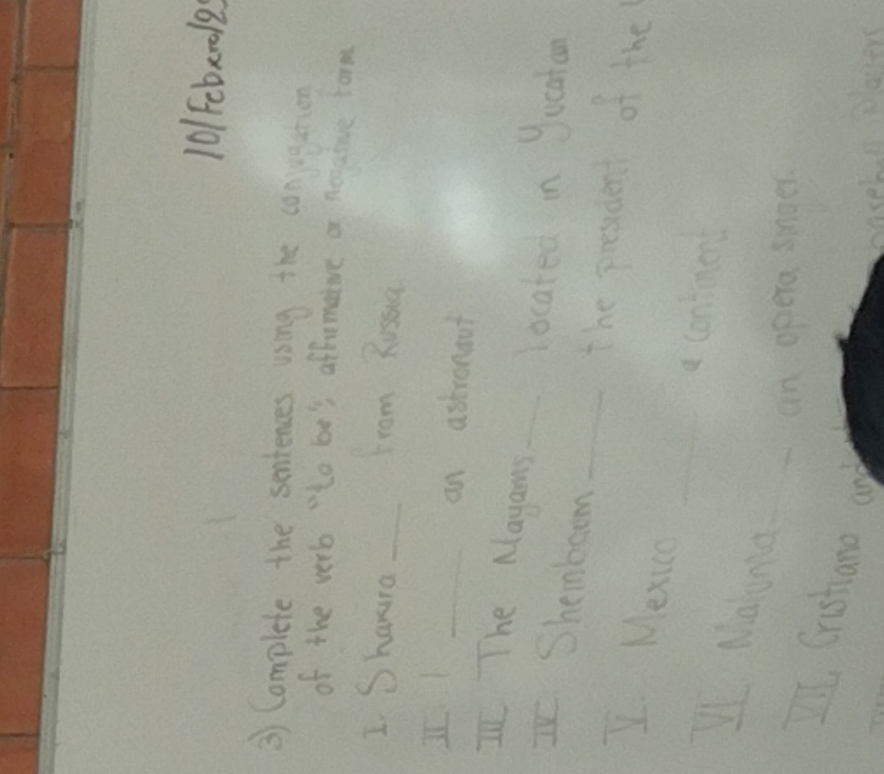 10/Febrero/2
3) Complete the sentences using the conjugation
of the verb "to be"; affirmative or negative form
I. Shakira ___ from Russia
II. I ___ an astronaut
III The Mayans ___ located in Yucatan
IV Sheinbaum ___ the president of the
V. Mexico ___ a continent
VI Maluma ___ an opera singer.
VII Cristiano and baseball